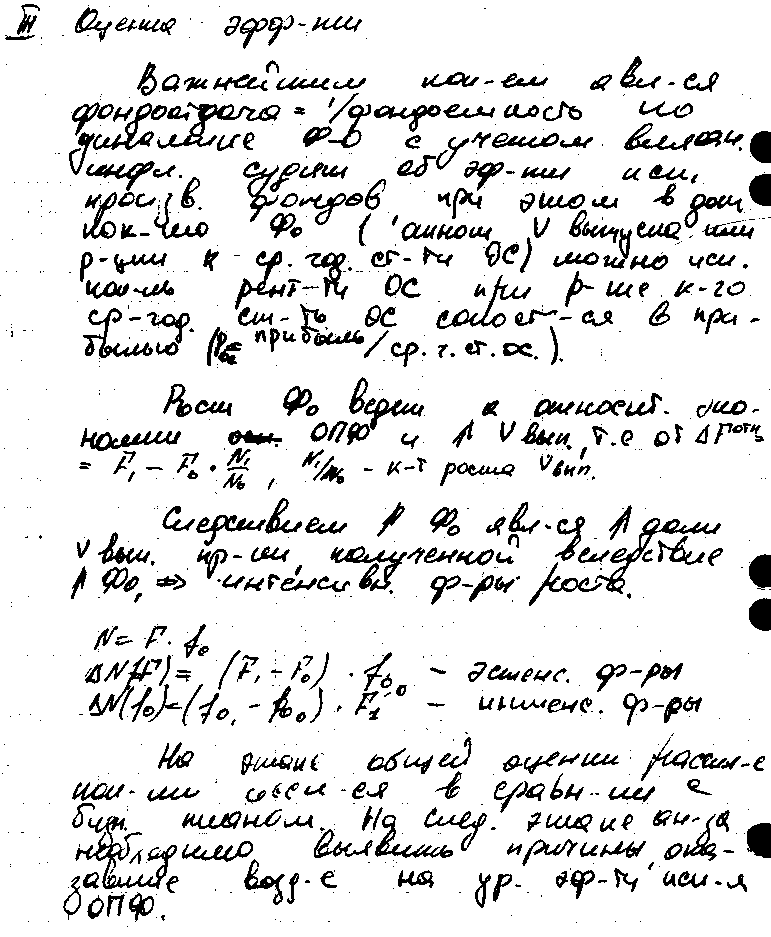 III Оценка эфф-ти
Важнейшим пок-ем явл-ся
фондоотдача = 1/фондоемкость по
динамике Ф-О с учетом влиян.
инфл. судят об эф-ти исп.
произв. фондов при этом в доп.
пок-лю Фо ( отнош V выпуска или
р-ции к ср. год. ст-ти ОС) можно исп.
пок-ль рент-ти ОС при р-те к-го
ср-год. ст-ть ОС сопост-ся в при-
былью (Рос= прибыль/ср. г. ст. ос.).
Рост Фо ведет к относит. эко-
номии ОПФ и ↑ V вып., т.е от ΔFотн
= F₁ – F₀ · N₁/N₀, N₁/N₀ - к-т роста Vвып.
Следствием ↑ Фо явл-ся ↑ доли
V вып. пр-ии, полученной вследствие
↑ Фо, ⇒ интенсивн. ф-ры роста.
N = F · fo
ΔN(F) = (F₁ – F₀) · fo₀ – экстенс. ф-ры
ΔN(fo) = (fo₁ – fo₀) · F₁ – интенс. ф-ры
На этапе общей оценки рассм-е
пок-ли в сравн-ии с
биз. планом. На след. этапе ан-за
необходимо выявить причины, ока-
завшие возд-е на ур. эф-ти исп-я
ОПФ.